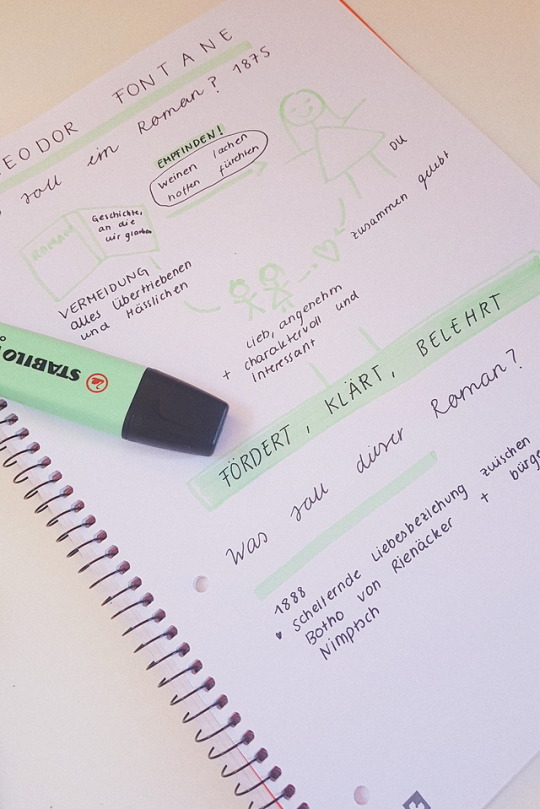 EODOR FONTANE
soll ein Roman? 1875
EMPFINDEN!
weinen lachen
hoffen fürchten
DU
zusammen gelebt
ROMAN
Geschichte,
an die
wir glauben
VERMEIDUNG
alles Übertriebenen
und Hässlichen
lieb, angenehm
+ charaktervoll und
interessant
STABILO
FÖRDERT, KLÄRT, BELEHRT
Was soll dieser Roman?
1888
♥ Scheiternde Liebesbeziehung zwischen
Botho von Rienäcker + bürge
Nimptsch